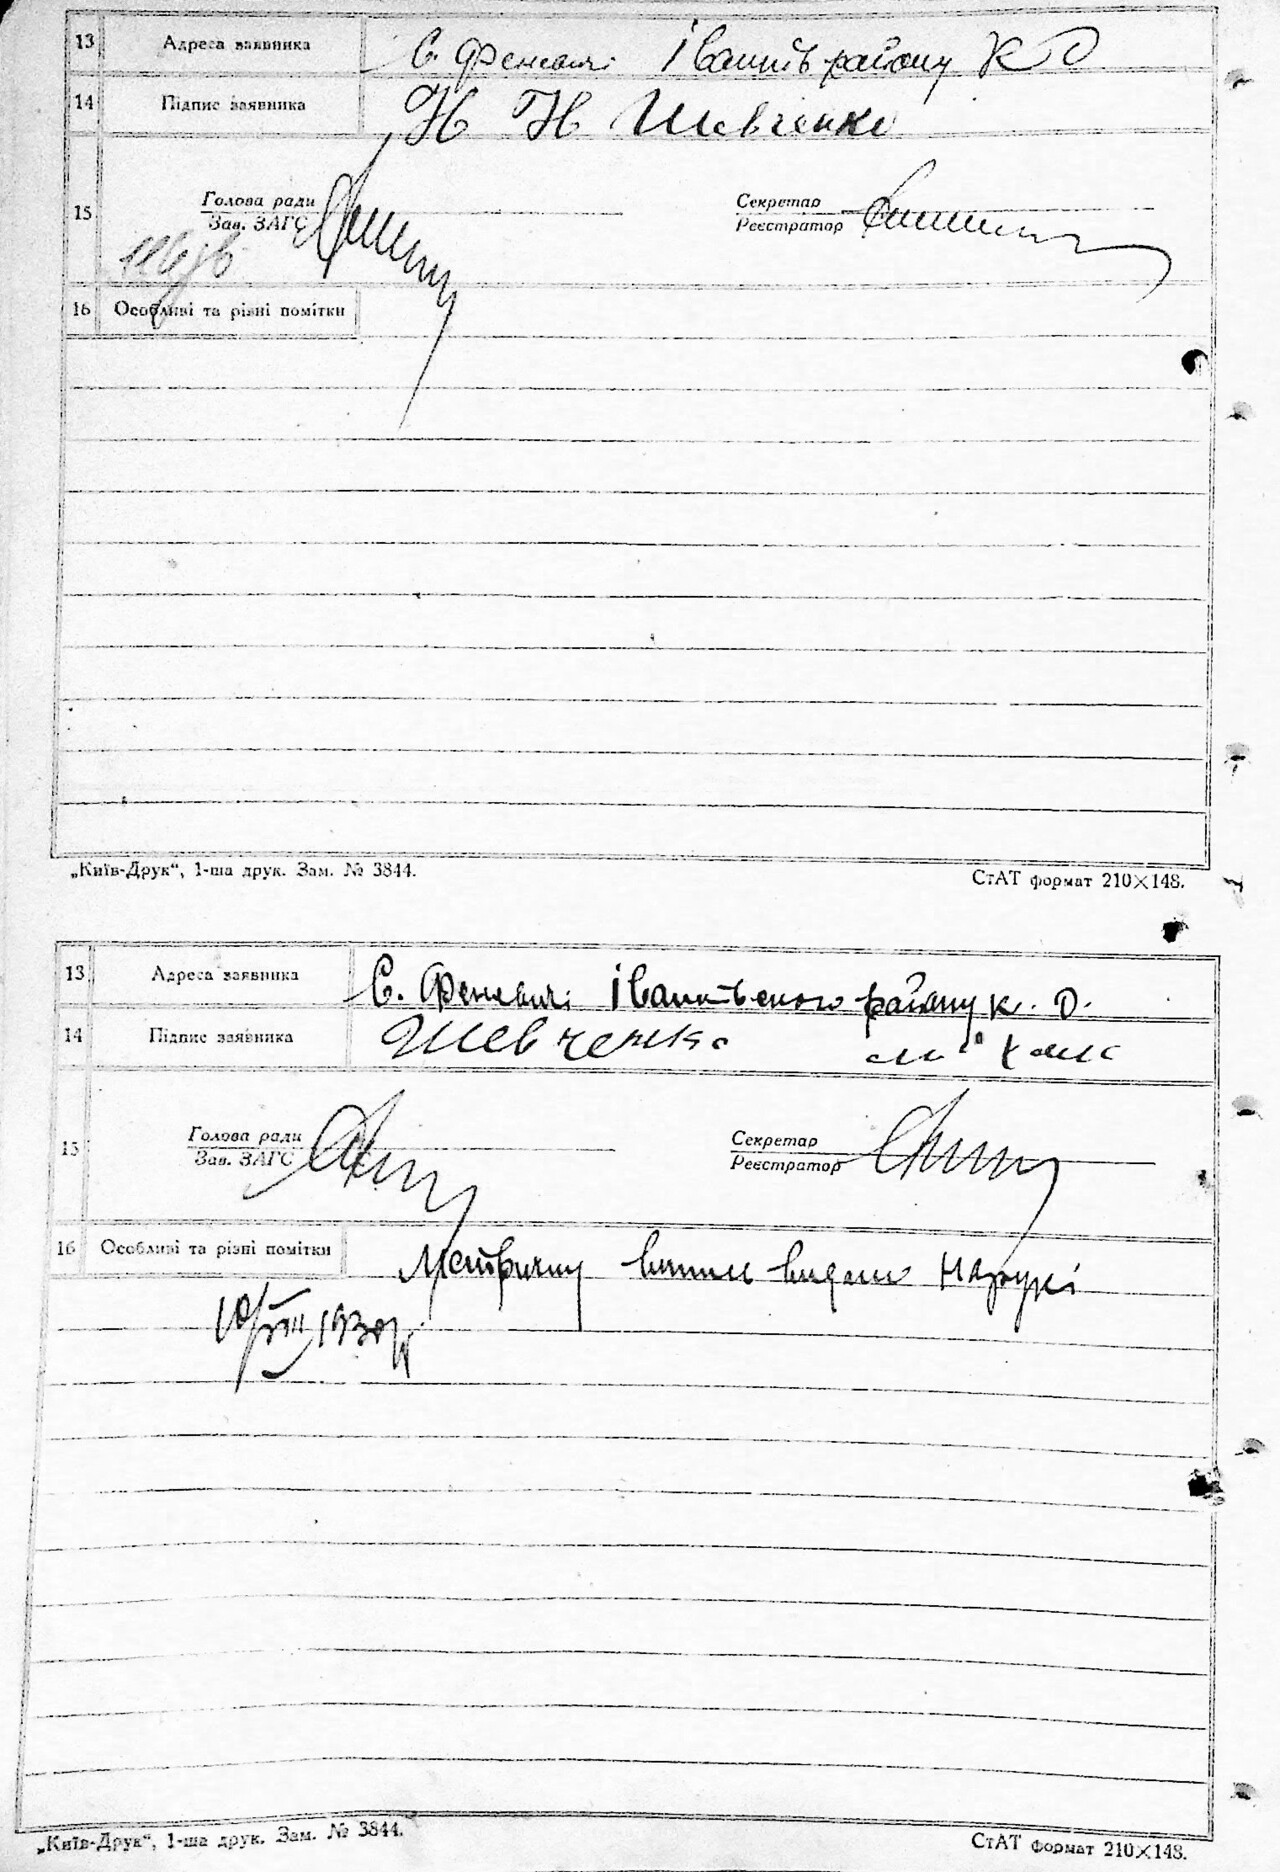 13 Адреса заявника С. Феневичі Іванків району К О
14 Підпис заявника Н Н Шевченко
15 Голова ради Секретар
Зав. ЗАГС Реєстратор
16 Особливі та різні помітки
„Київ-Друк“, 1-ша друк. Зам. № 3844. СтАТ формат 210×148.
13 Адреса заявника С. Феневичі Іванківського району К. О.
14 Підпис заявника Шевченко
15 Голова ради Секретар
Зав. ЗАГС Реєстратор
16 Особливі та різні помітки Метричну випис видано на руки
10/VIII 1930 р.
„Київ-Друк“, 1-ша друк. Зам. № 3844. СтАТ формат 210×148.